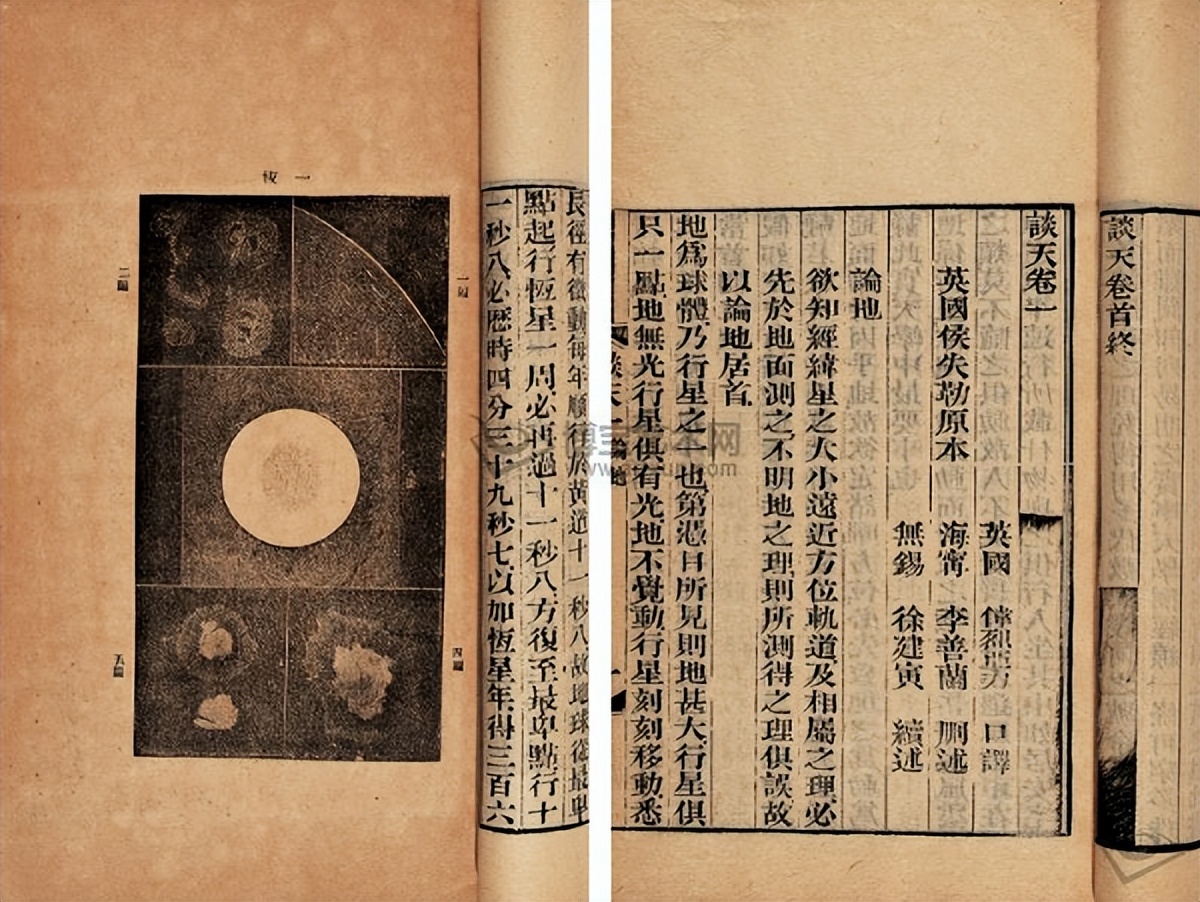 一板
一圖
二圖
四圖
五圖
長徑有微動每年順行於黃道十一秒八故地球從最卑
點起行恆星一周必再過十一秒八方復至最卑點行十
一秒八必歷時四分三十九秒七以加恆星年得三百六
談天卷首終
談天卷一
英國侯失勒原本
英國 偉烈亞力 口譯
海寧 李善蘭 刪述
無錫 徐建寅 續述
論地
欲知經緯星之大小遠近方位軌道及相屬之理必
先於地面測之不明地之理則所測得之理俱誤故
以論地居首
地爲球體乃行星之一也第憑目所見則地甚大行星俱
只一點地無光行星俱有光地不覺動行星刻刻移動悉
談天一 論地
一